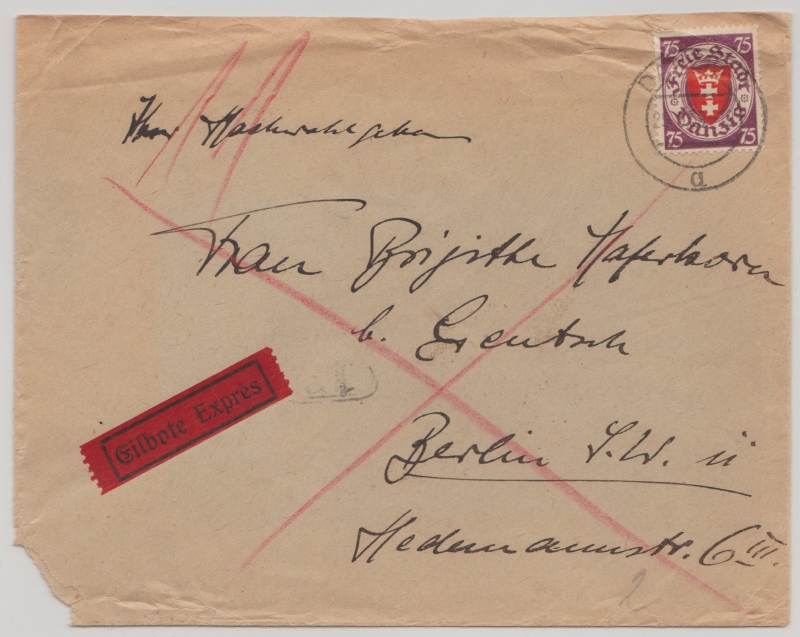 75 75
Freie Stadt
Danzig
75 75
D
a
Frau Brigitte Haferkorn
b. Grentsch
Eilbote Exprès
Berlin S.W. 11
Hedemannstr. 6 III.
2